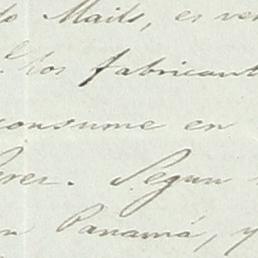 Mails, es ve
los fabricant
consume en
Segun
Panamá, y